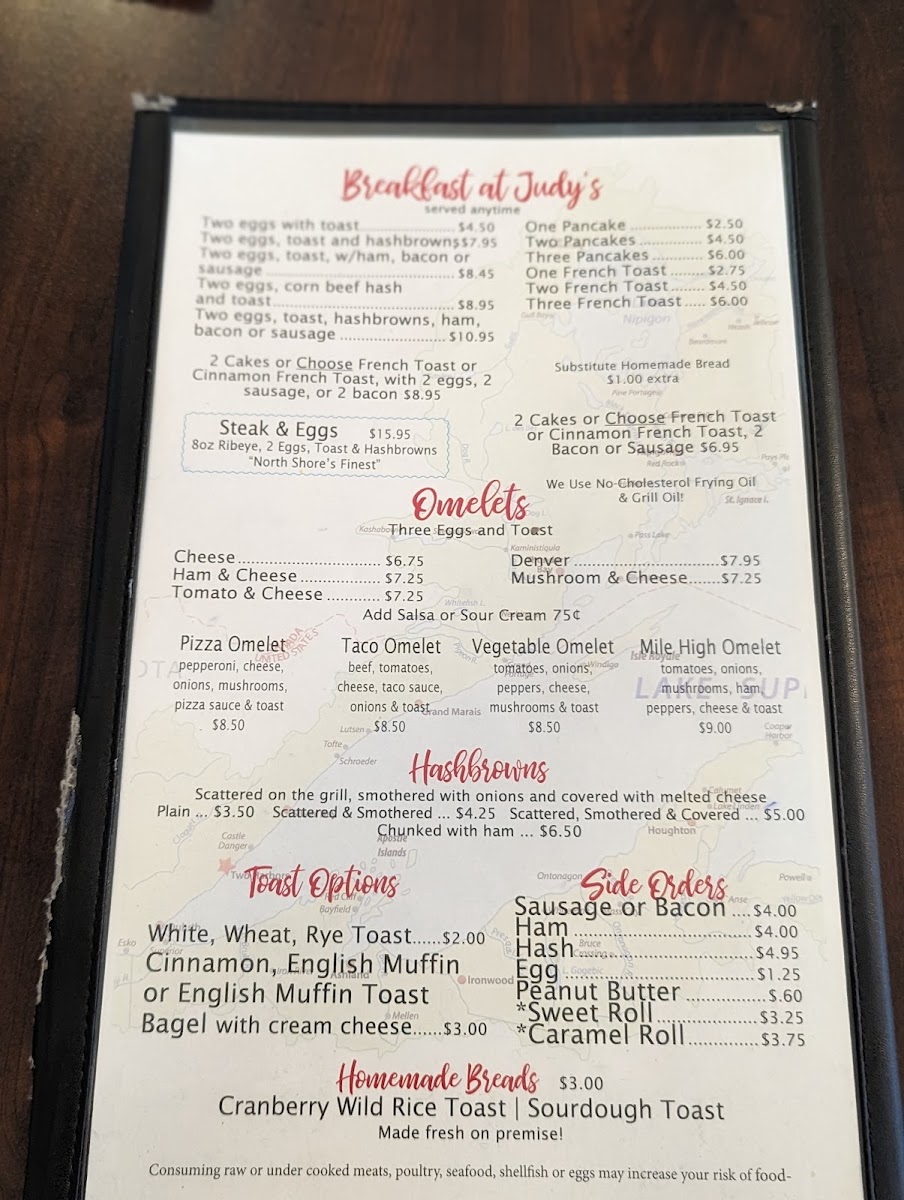 Breakfast at Judy's
served anytime
Two eggs with toast.................... $4.50
Two eggs, toast and hashbrowns$7.95
Two eggs, toast, w/ham, bacon or
sausage ............................................ $8.45
Two eggs, corn beef hash
and toast..................................... $8.95
Two eggs, toast, hashbrowns, ham,
bacon or sausage ........................ $10.95
One Pancake ................ $2.50
Two Pancakes .............. $4.50
Three Pancakes ........... $6.00
One French Toast ........ $2.75
Two French Toast........ $4.50
Three French Toast ..... $6.00
2 Cakes or Choose French Toast or
Cinnamon French Toast, with 2 eggs, 2
sausage, or 2 bacon $8.95
Substitute Homemade Bread
$1.00 extra
Steak & Eggs $15.95
8oz Ribeye, 2 Eggs, Toast & Hashbrowns
"North Shore's Finest"
2 Cakes or Choose French Toast
or Cinnamon French Toast, 2
Bacon or Sausage $6.95
We Use No-Cholesterol Frying Oil
& Grill Oil!
Omelets
Three Eggs and Toast
Cheese ................................ $6.75
Ham & Cheese .................. $7.25
Tomato & Cheese ............ $7.25
Denver ................................$7.95
Mushroom & Cheese.......$7.25
Add Salsa or Sour Cream 75¢
Pizza Omelet
pepperoni, cheese,
onions, mushrooms,
pizza sauce & toast
$8.50
Taco Omelet
beef, tomatoes,
cheese, taco sauce,
onions & toast
$8.50
Vegetable Omelet
tomatoes, onions,
peppers, cheese,
mushrooms & toast
$8.50
Mile High Omelet
tomatoes, onions,
mushrooms, ham,
peppers, cheese & toast
$9.00
Hashbrowns
Scattered on the grill, smothered with onions and covered with melted cheese
Plain ... $3.50 Scattered & Smothered ... $4.25 Scattered, Smothered & Covered ... $5.00
Chunked with ham ... $6.50
Toast Options
White, Wheat, Rye Toast......$2.00
Cinnamon, English Muffin
or English Muffin Toast
Bagel with cream cheese......$3.00
Side Orders
Sausage or Bacon ....$4.00
Ham ............................$4.00
Hash............................$4.95
Egg ..............................$1.25
Peanut Butter ..............$.60
*Sweet Roll..................$3.25
*Caramel Roll..............$3.75
Homemade Breads $3.00
Cranberry Wild Rice Toast | Sourdough Toast
Made fresh on premise!
Consuming raw or under cooked meats, poultry, seafood, shellfish or eggs may increase your risk of food-
Nipigon
Pass Lake
St. Ignace I.
Kaministiquia
UNITED STATES
Isle Royale
Windigo
LAKE SUP
Grand Marais
Lutsen
Tofte
Schroeder
Copper
Harbor
Houghton
Castle
Danger
Apostle
Islands
Ontonagon
Bayfield
Esko
Superior
Ashland
Ironwood
Mellen
Bruce
Crossing
L. Gogebic